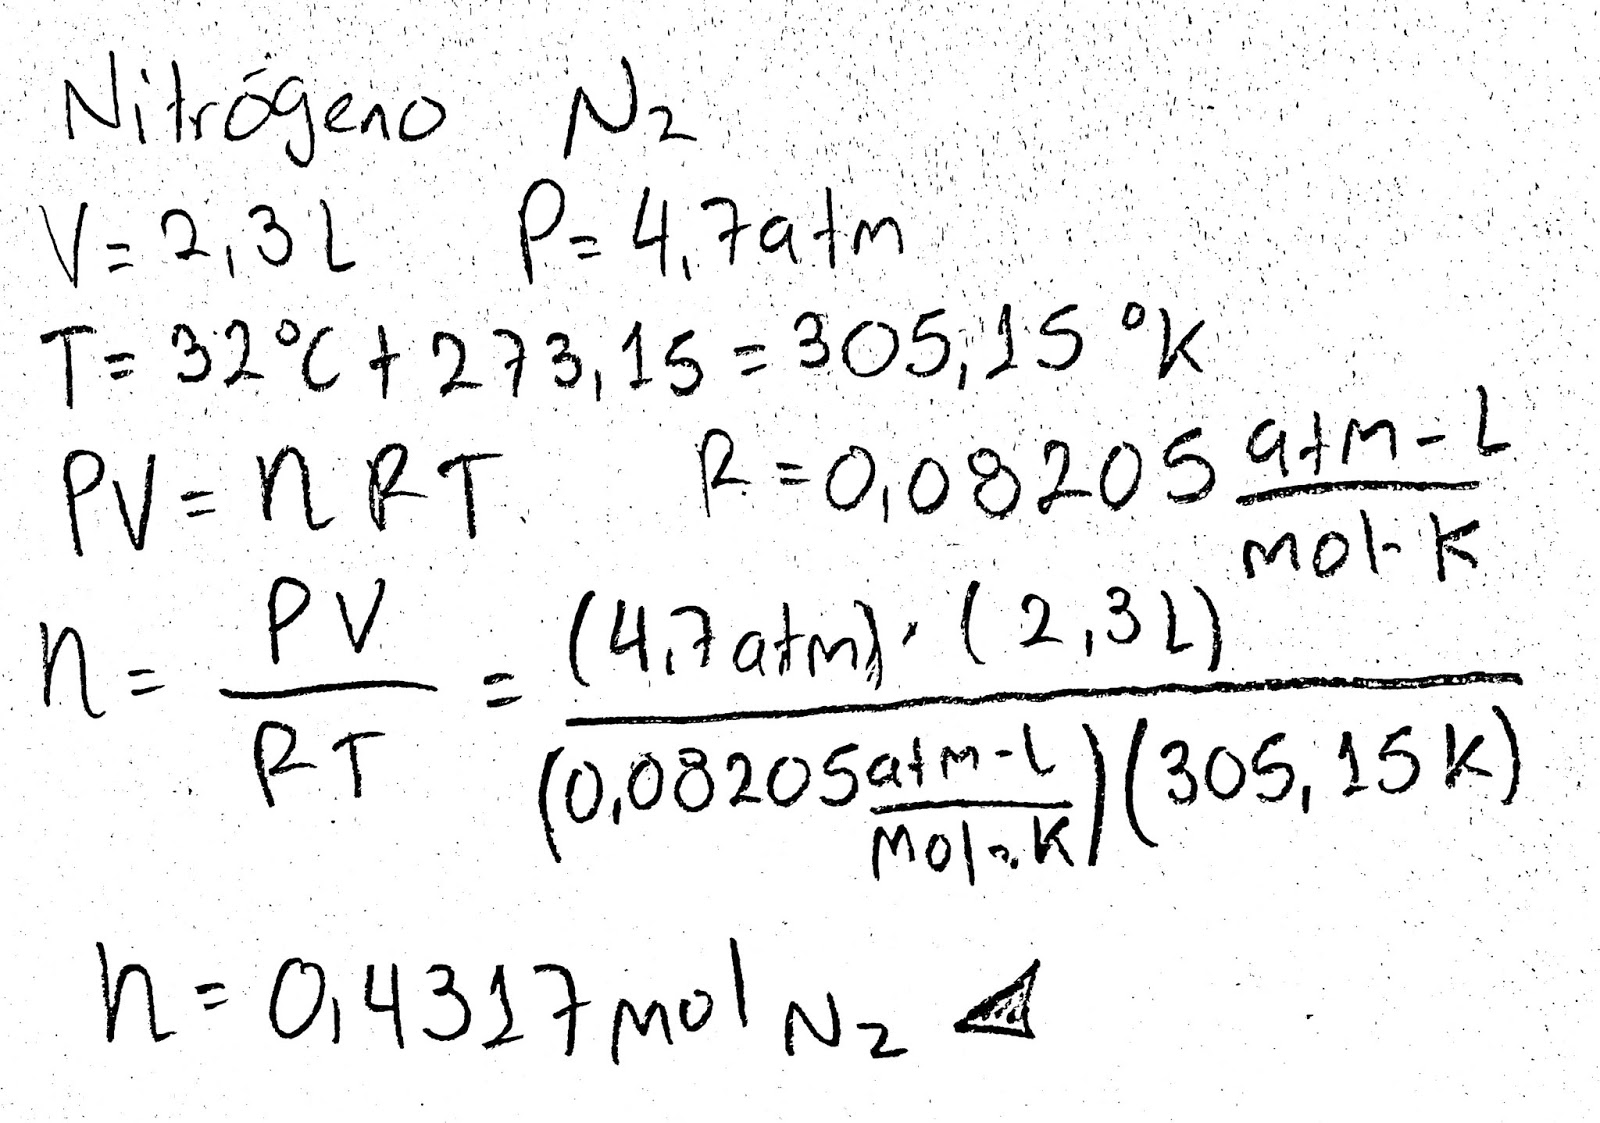 Nitrógeno N₂
V = 2,3 L P = 4,7 atm
T = 32°C + 273,15 = 305,15 °K
PV = nRT. R = 0,08205 atm-L / mol-K
n = PV / RT = (4,7 atm) · (2,3 L) / (0,08205 atm-L / mol-K)(305,15 K)
n = 0,4317 mol N₂